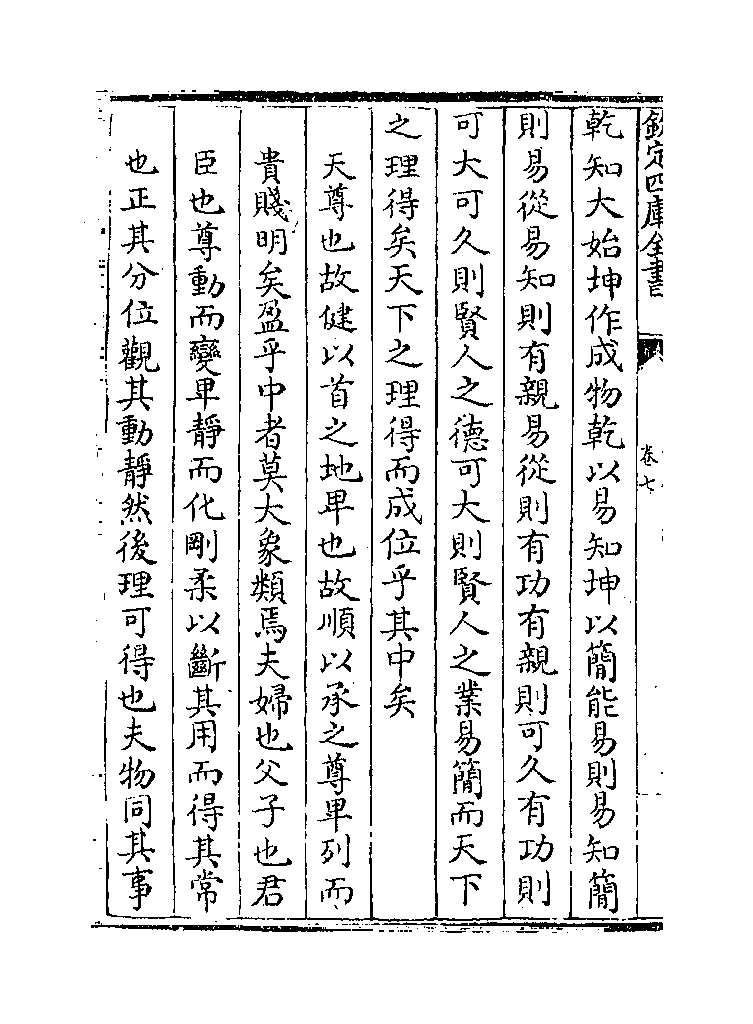 欽定四庫全書
卷七
乾知大始坤作成物乾以易知坤以簡能易則易知簡
則易從易知則有親易從則有功有親則可久有功則
可大可久則賢人之德可大則賢人之業易簡而天下
之理得矣天下之理得而成位乎其中矣
天尊也故健以首之地卑也故順以承之尊卑列而
貴賤明矣盈乎中者莫大象類焉夫婦也父子也君
臣也尊動而變卑靜而化剛柔以斷其用而得其常
也正其分位觀其動靜然後理可得也夫物同其事